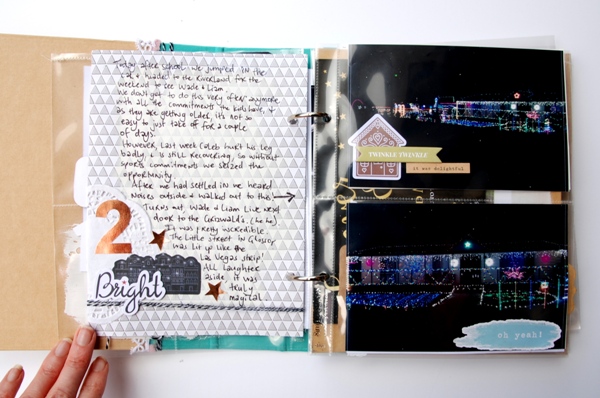 Today after school we jumped in the
car & headed to the Riverland for the
weekend to see Wade & Liam
We don't get to do this very often anymore
with all the commitments the kids have, &
as they are getting older, it's not so
easy to just take off for a couple
of days.
However, last week Caleb hurt his leg
badly, & is still recovering, so without
sports commitments we seized the
opportunity.
After we had settled in we heard
noises outside & walked out to this!
Turns out Wade & Liam live next
door to the Griswald's, (he he)
It was pretty incredible.
The little street in Glossop
was lit up like the
Las Vegas strip!
All laughter
aside, it was
truly
magical.
2
Bright
TWINKLE TWINKLE
it was delightful
oh yeah!